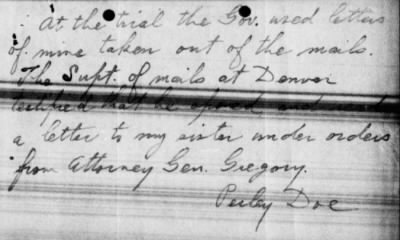 At the trial the Gov. used letters
of mine taken out of the mails.
The Supt. of mails at Denver
testified that he opened and read
a letter to my sister under orders
from Attorney Gen. Gregory.
Perley Doe